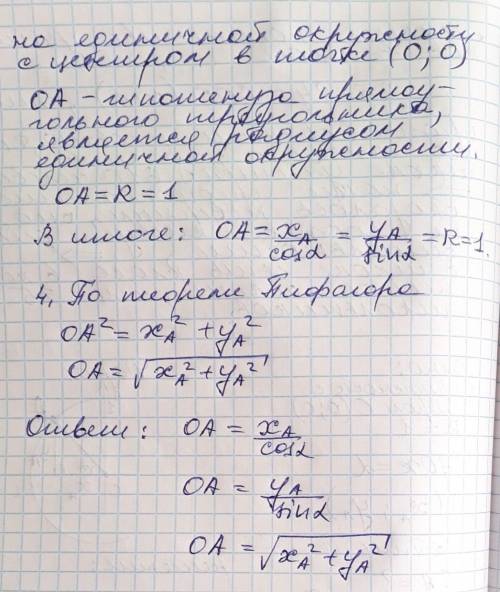 на единичной окружности
с центром в точке (0; 0)
OA - гипотенуза прямоу-
гольного треугольника,
является радиусом
единичной окружности.
OA = R = 1
В итоге: OA = x_A/cosα = y_A/sinα = R=1.
4, По теореме Пифагора
OA² = x_A² + y_A²
OA = √(x_A² + y_A²)
Ответ: OA = x_A/cosα
OA = y_A/sinα
OA = √(x_A² + y_A²)